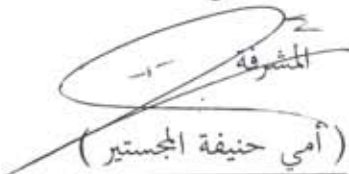 المشرفة
( أمي حنيفة المجستير )